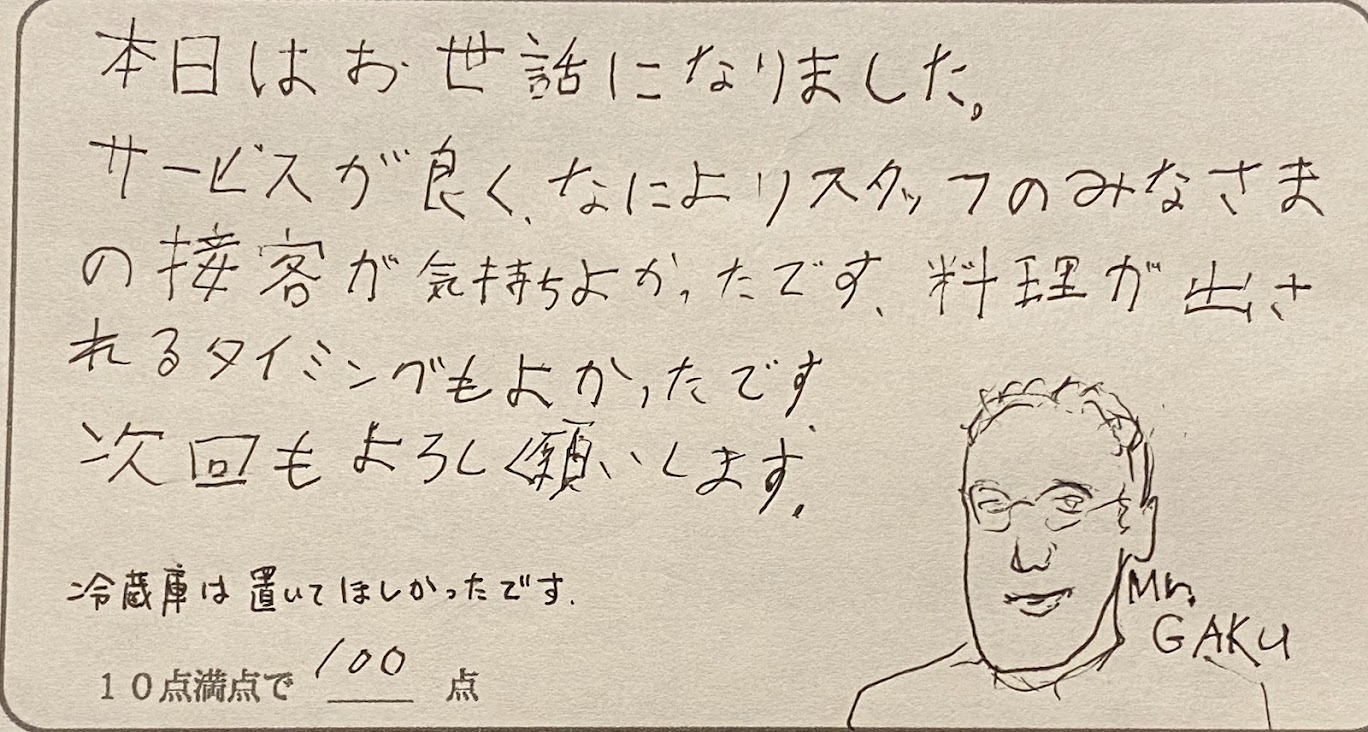 本日はお世話になりました。
サービスが良く、なによりスタッフのみなさま
の接客が気持ちよかったです、料理が出さ
れるタイミングもよかったです、
次回もよろしく願いします。
冷蔵庫は置いてほしかったです.
10点満点で 100 点
Mr.
GAKU